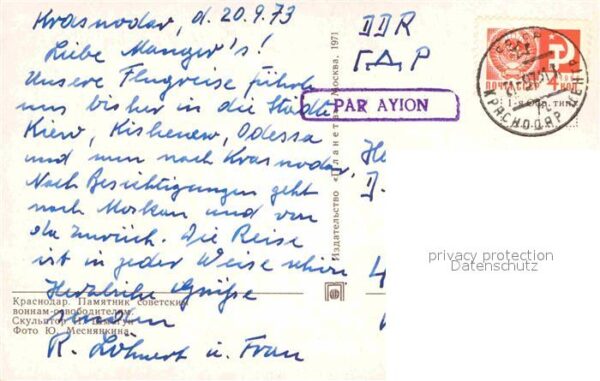 Krasnodar, d. 20.9.73
Liebe Manger's!
Unsere Flugreise führte
uns bisher in die Städte
Kiew, Kishenew, Odessa
und nun nach Krasnodar,
Nach Besichtigungen geht
nach Moskau und von
da zurück. Die Reise
ist in jeder Weise schön
Herzliche Grüße
senden
R. Löhnert u. Frau
DDR
ГДР
PAR AVION
Издательство «Планета» Москва, 1971
ПОЧТА СССР
4 КОП
КРАСНОДАР
privacy protection
Datenschutz
Краснодар. Памятник советским
воинам-освободителям.
Скульптор И. Шмагун
Фото Ю. Меснянкина.